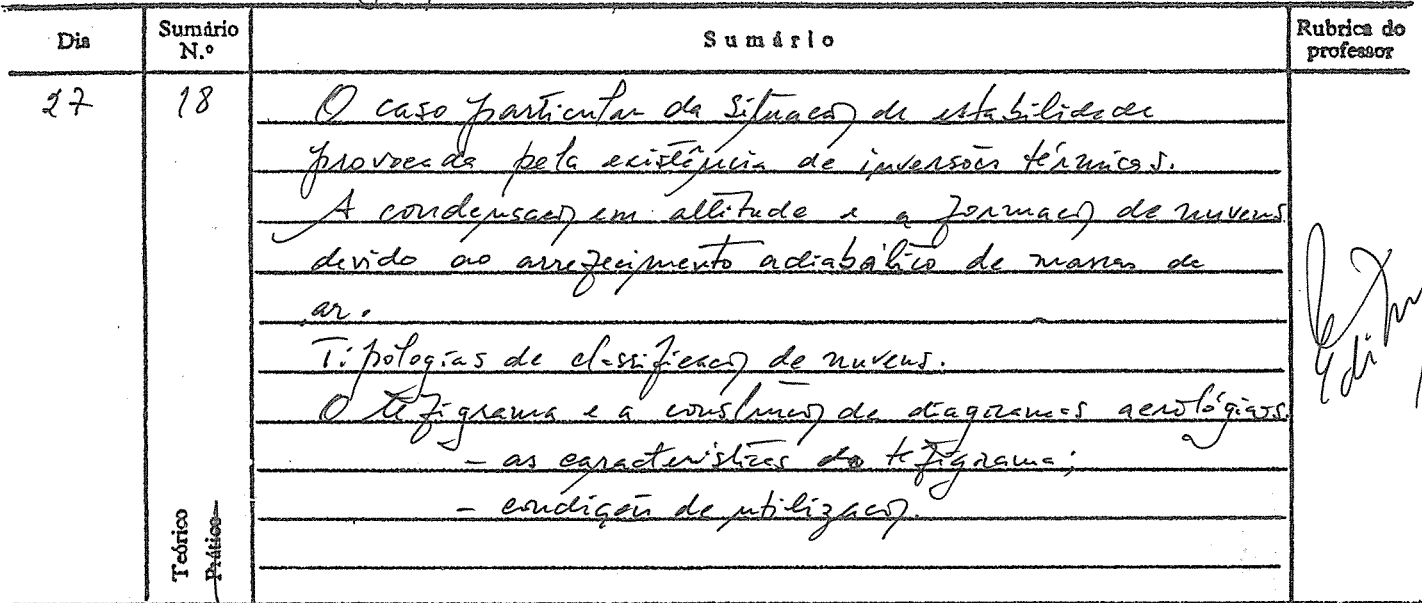 Dia Sumário N.º Sumário Rubrica do professor
27 18 O caso particular da situação de estabilidade
provocada pela existência de inversões térmicas.
A condensação em altitude e a formação de nuvens
devido ao arrefecimento adiabático de massas de
ar.
Tipologias de classificação de nuvens.
O tefigrama e a construção de diagramas aerológicos.
- as características do tefigrama;
- condições de utilização.
Teórico
Prático